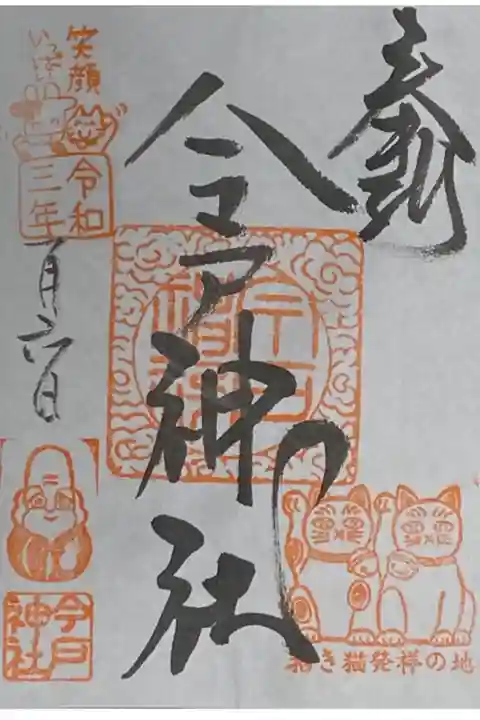 奉拝
今戸神社
今戸
神社
招き猫発祥の地
笑顔
いっぱい
令和
三年
一月六日
今戸
神社